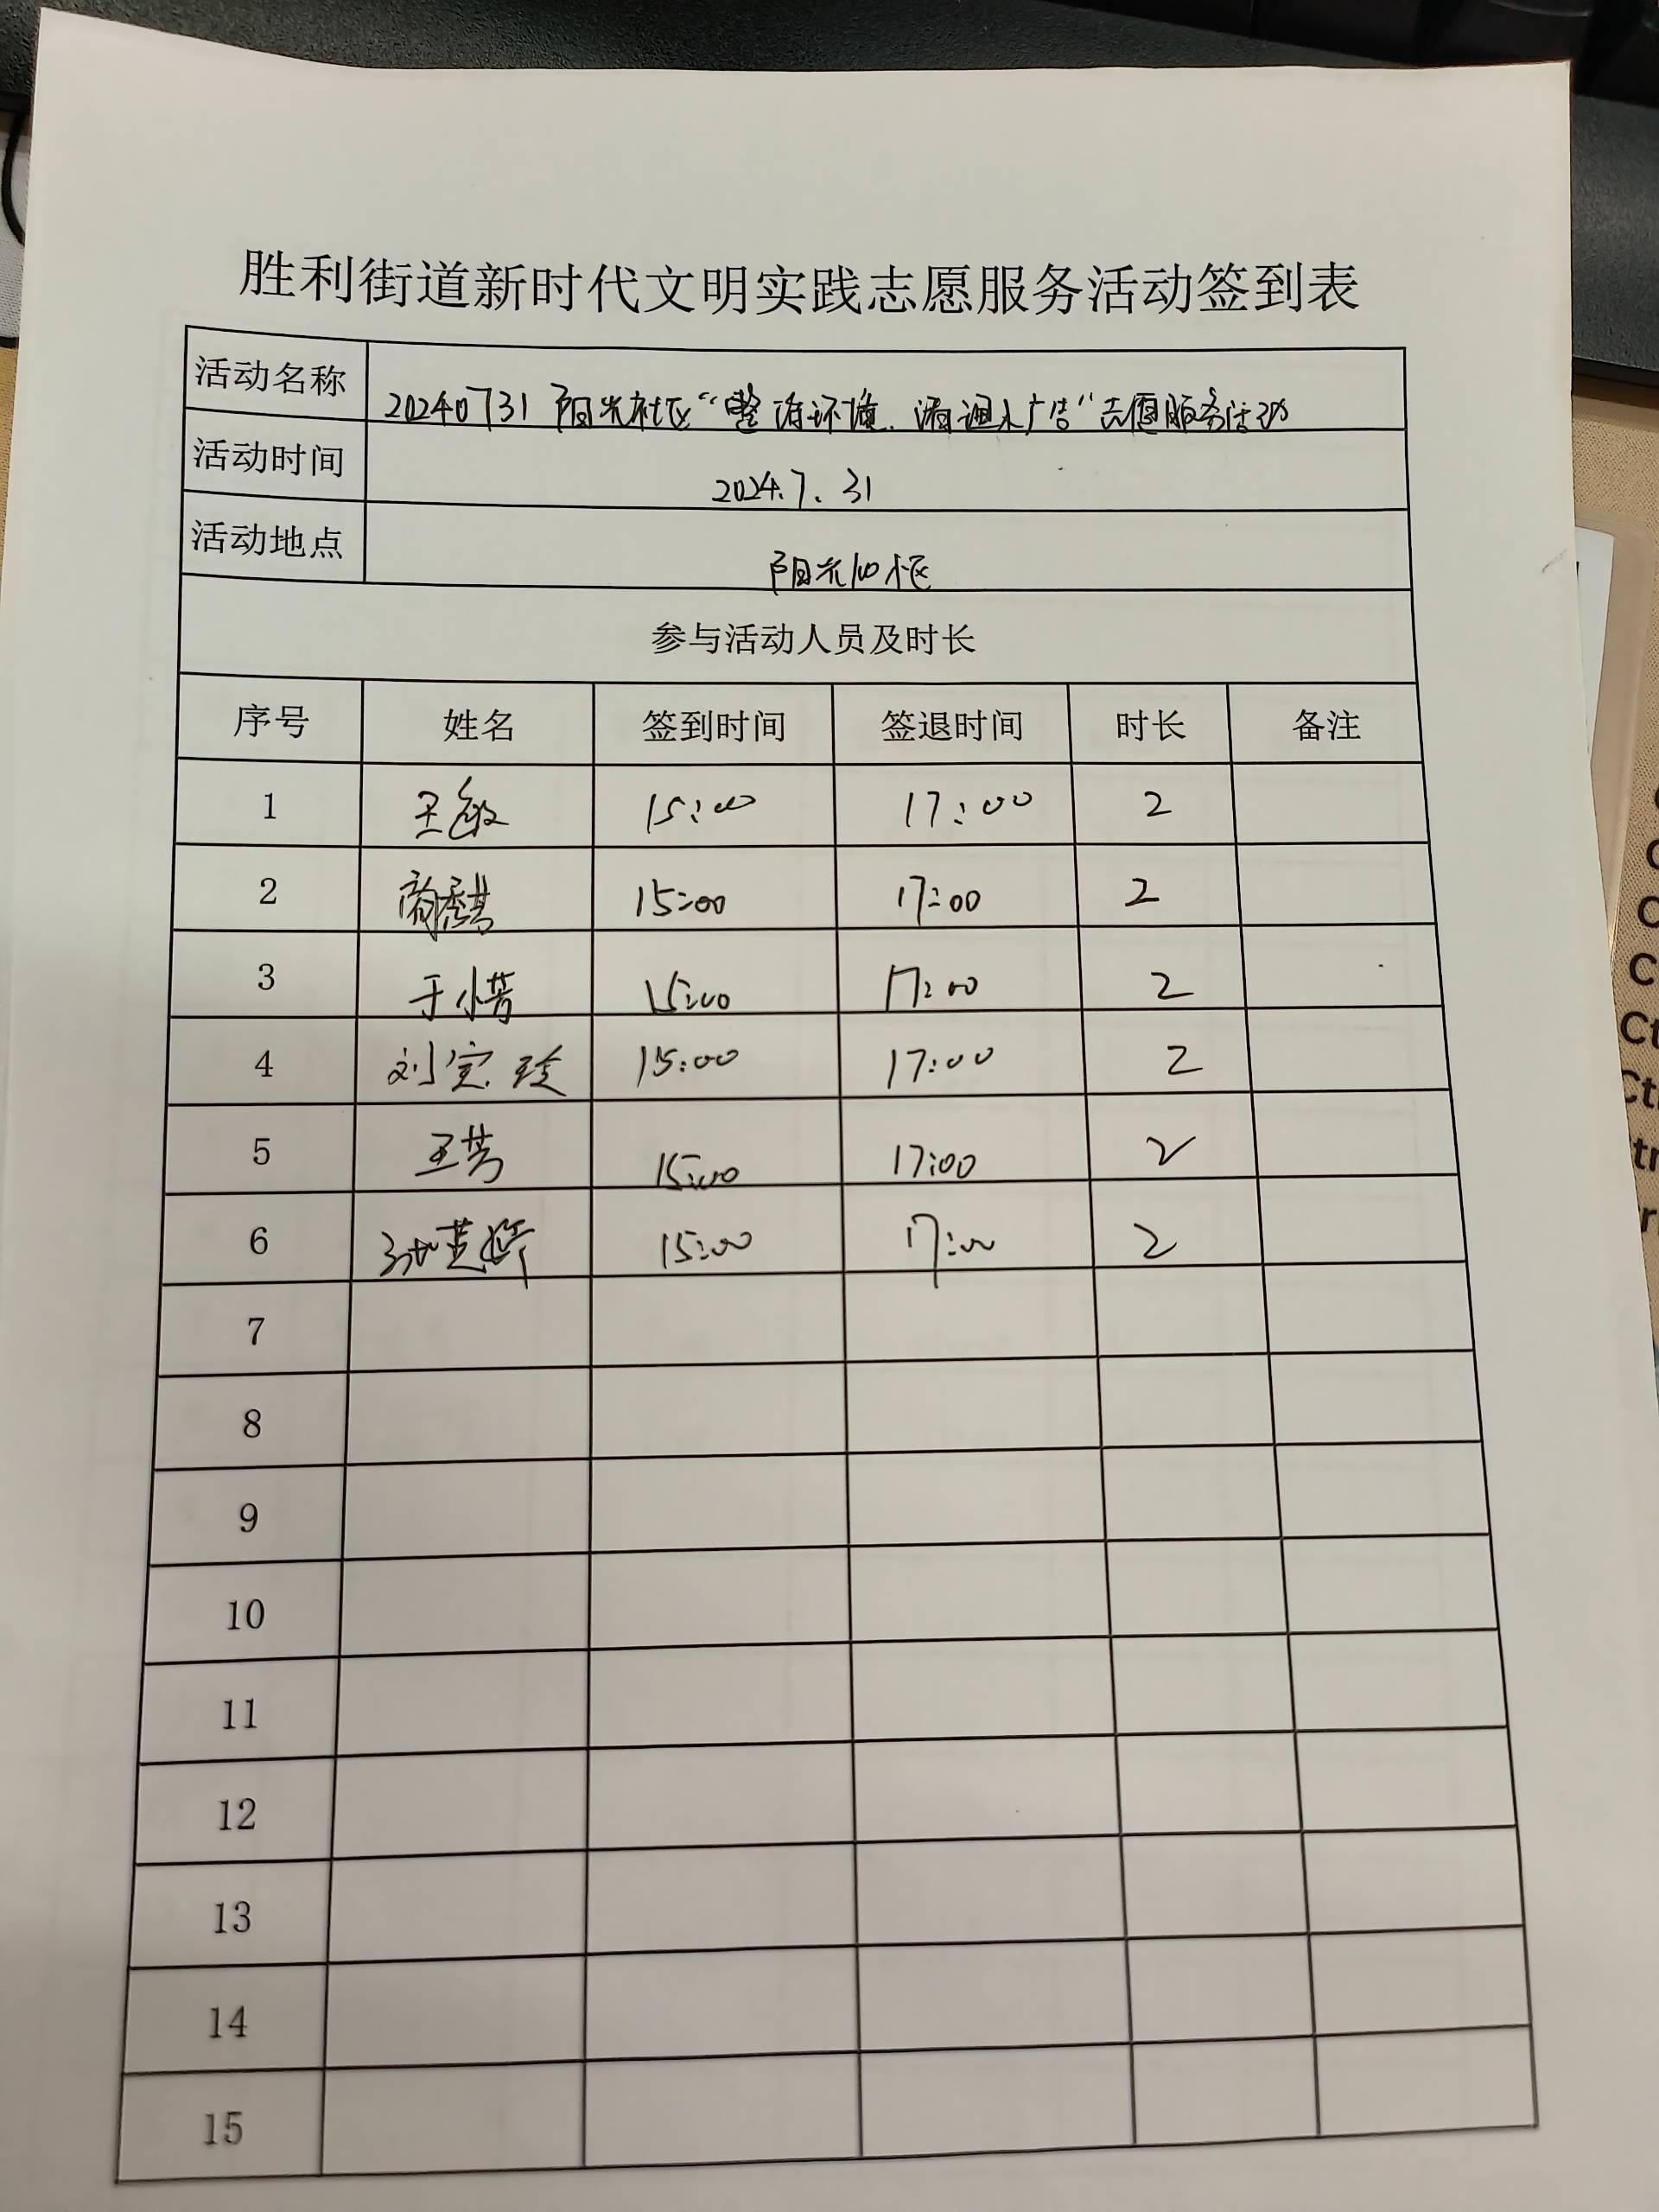 胜利街道新时代文明实践志愿服务活动签到表
活动名称 20240731 阳光社区“整治环境、清理小广告”志愿服务活动
活动时间 2024.7.31
活动地点 阳光100小区
参与活动人员及时长
序号 姓名 签到时间 签退时间 时长 备注
1 王敏 15:00 17:00 2
2 15:00 17:00 2
3 于小芳 15:00 17:00 2
4 刘宝玲 15:00 17:00 2
5 王芳 15:00 17:00 2
6 15:00 17:00 2
7
8
9
10
11
12
13
14
15